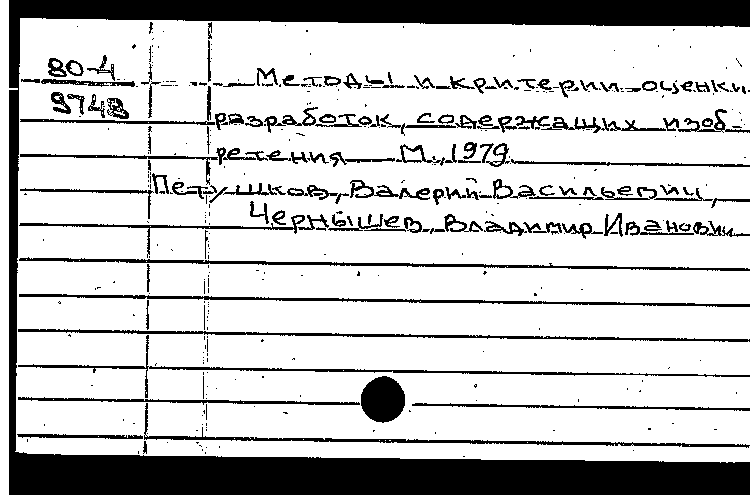 80-4
9748
Методы и критерии оценки
разработок, содержащих изоб-
ретения М., 1979.
Петушков, Валерий Васильевич,
Чернышев, Владимир Иванович